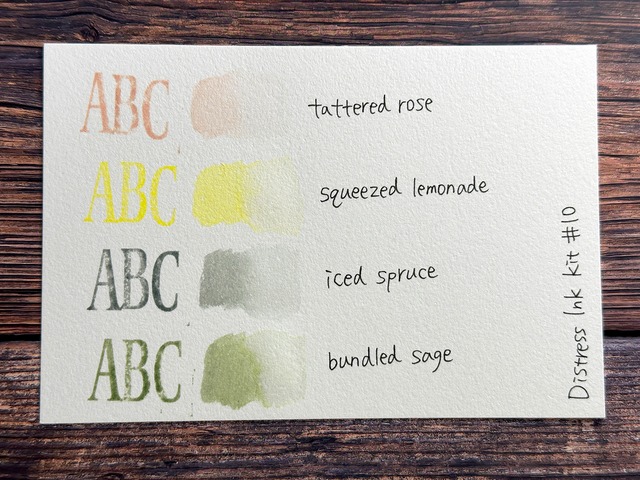 ABC tattered rose
ABC squeezed lemonade
ABC iced spruce
ABC bundled sage
Distress Ink kit #10